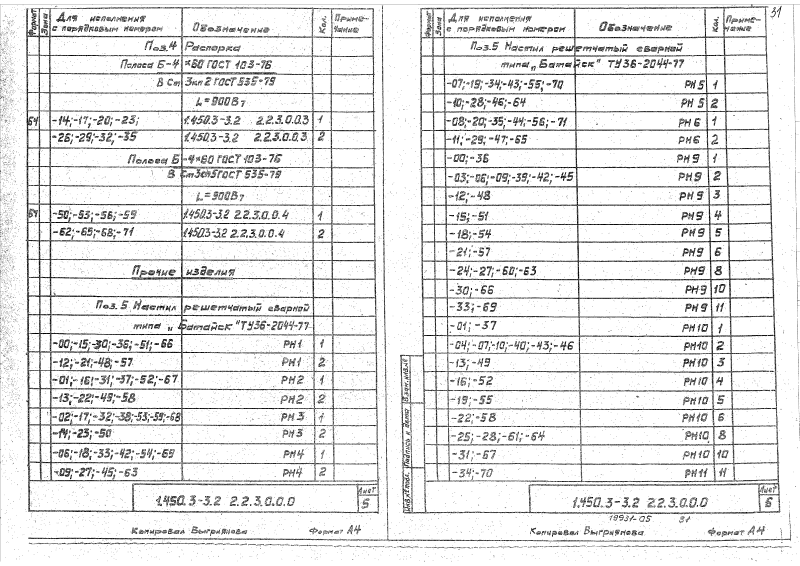 Формат Зона Для исполнения с порядковым номером Обозначение Кол. Примечание
Поз.4 Распорка
Полоса Б-4×60 ГОСТ 103-76
В Ст 3кп2 ГОСТ 535-79
L=900
-14;-17;-20;-23; 1.450.3-3.2 2.2.3.0.0.3 1
-26;-29;-32;-35 1.450.3-3.2 2.2.3.0.0.3 2
Полоса Б-4×60 ГОСТ 103-76
ГОСТ 535-79
L=900
-50;-53;-56;-59 1.450.3-3.2 2.2.3.0.0.4 1
-62;-65;-68;-71 1.450.3-3.2 2.2.3.0.0.4 2
Прочие изделия
Поз.5 Настил решетчатый сварной
типа „Батайск" ТУ36-2044-77
-00;-15;-30;-36;-51;-66 РН1 1
-12;-21;-48;-57 РН1 2
-01;-16;-31;-37;-52;-67 РН2 1
-13;-22;-49;-58 РН2 2
-02;-17;-32;-38;-53;-59;-68 РН3 1
-14;-23;-50 РН3 2
-06;-18;-33;-42;-54;-69 РН4 1
-09;-27;-45;-63 РН4 2
1.450.3-3.2 2.2.3.0.0.0 Лист 5
Копировал Выгриянова Формат А4
31
Формат Зона Для исполнения с порядковым номером Обозначение Кол. Примечание
Поз.5 Настил решетчатый сварной
типа „Батайск" ТУ36-2044-77
-07;-19;-34;-43;-55;-70 РН5 1
-10;-28;-46;-64 РН5 2
-08;-20;-35;-44;-56;-71 РН6 1
-11;-29;-47;-65 РН6 2
-00;-36 РН9 1
-03;-06;-09;-39;-42;-45 РН9 2
-12;-48 РН9 3
-15;-51 РН9 4
-18;-54 РН9 5
-21;-57 РН9 6
-24;-27;-60;-63 РН9 8
-30;-66 РН9 10
-33;-69 РН9 11
-01;-37 РН10 1
-04;-07;-10;-40;-43;-46 РН10 2
-13;-49 РН10 3
-16;-52 РН10 4
-19;-55 РН10 5
-22;-58 РН10 6
-25;-28;-61;-64 РН10 8
-31;-67 РН10 10
-34;-70 РН11 11
Инв.№подл. Подпись и дата Взам.инв.№
1.450.3-3.2 2.2.3.0.0.0 Лист 6
18931-05 31
Копировал Выгриянова Формат А4